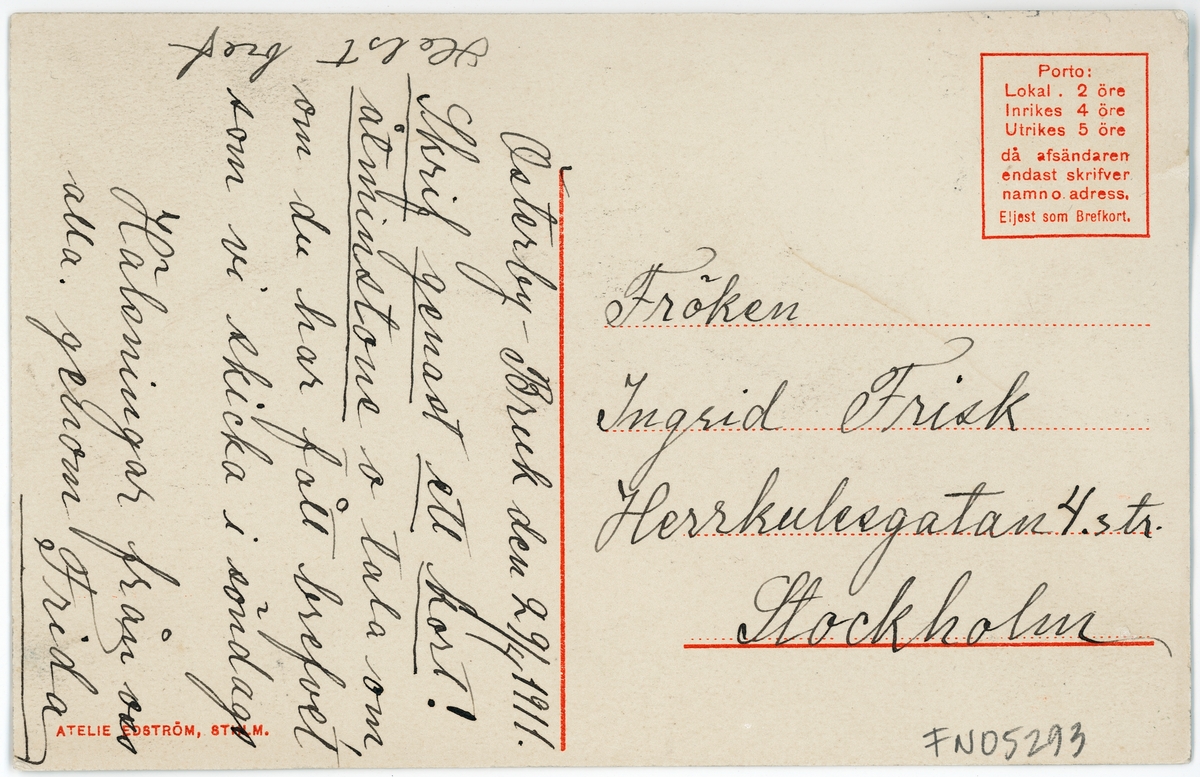 Österby-Bruk den 29/4 1911.
Skrif genast ett kort!
åtminstone o tala om
om du har fått brefvet
som vi skicka i söndags
Hälsningar från oss
alla. genom Frida
Helst
bref
Porto:
Lokal . 2 öre
Inrikes 4 öre
Utrikes 5 öre
då afsändaren
endast skrifver
namn o. adress.
Eljest som Brefkort.
Fröken
Ingrid Frisk
Herrkulesgatan 4. str.
Stockholm
ATELIE EDSTRÖM, STHLM.
FN05293